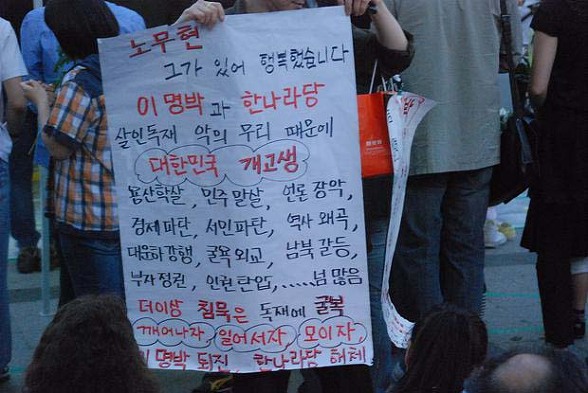 노무현
그가 있어 행복했습니다
이명박과 한나라당
살인독재 악의 무리 때문에
대한민국 개고생
용산학살, 민주말살, 언론장악,
경제파탄, 서민파탄, 역사왜곡,
대운하강행, 굴욕외교, 남북갈등,
부자정권, 인권탄압, ..... 넘 많음
더이상 침묵은 독재에 굴복
깨어나자, 일어서자, 모이자,
이명박 퇴진, 한나라당 해체